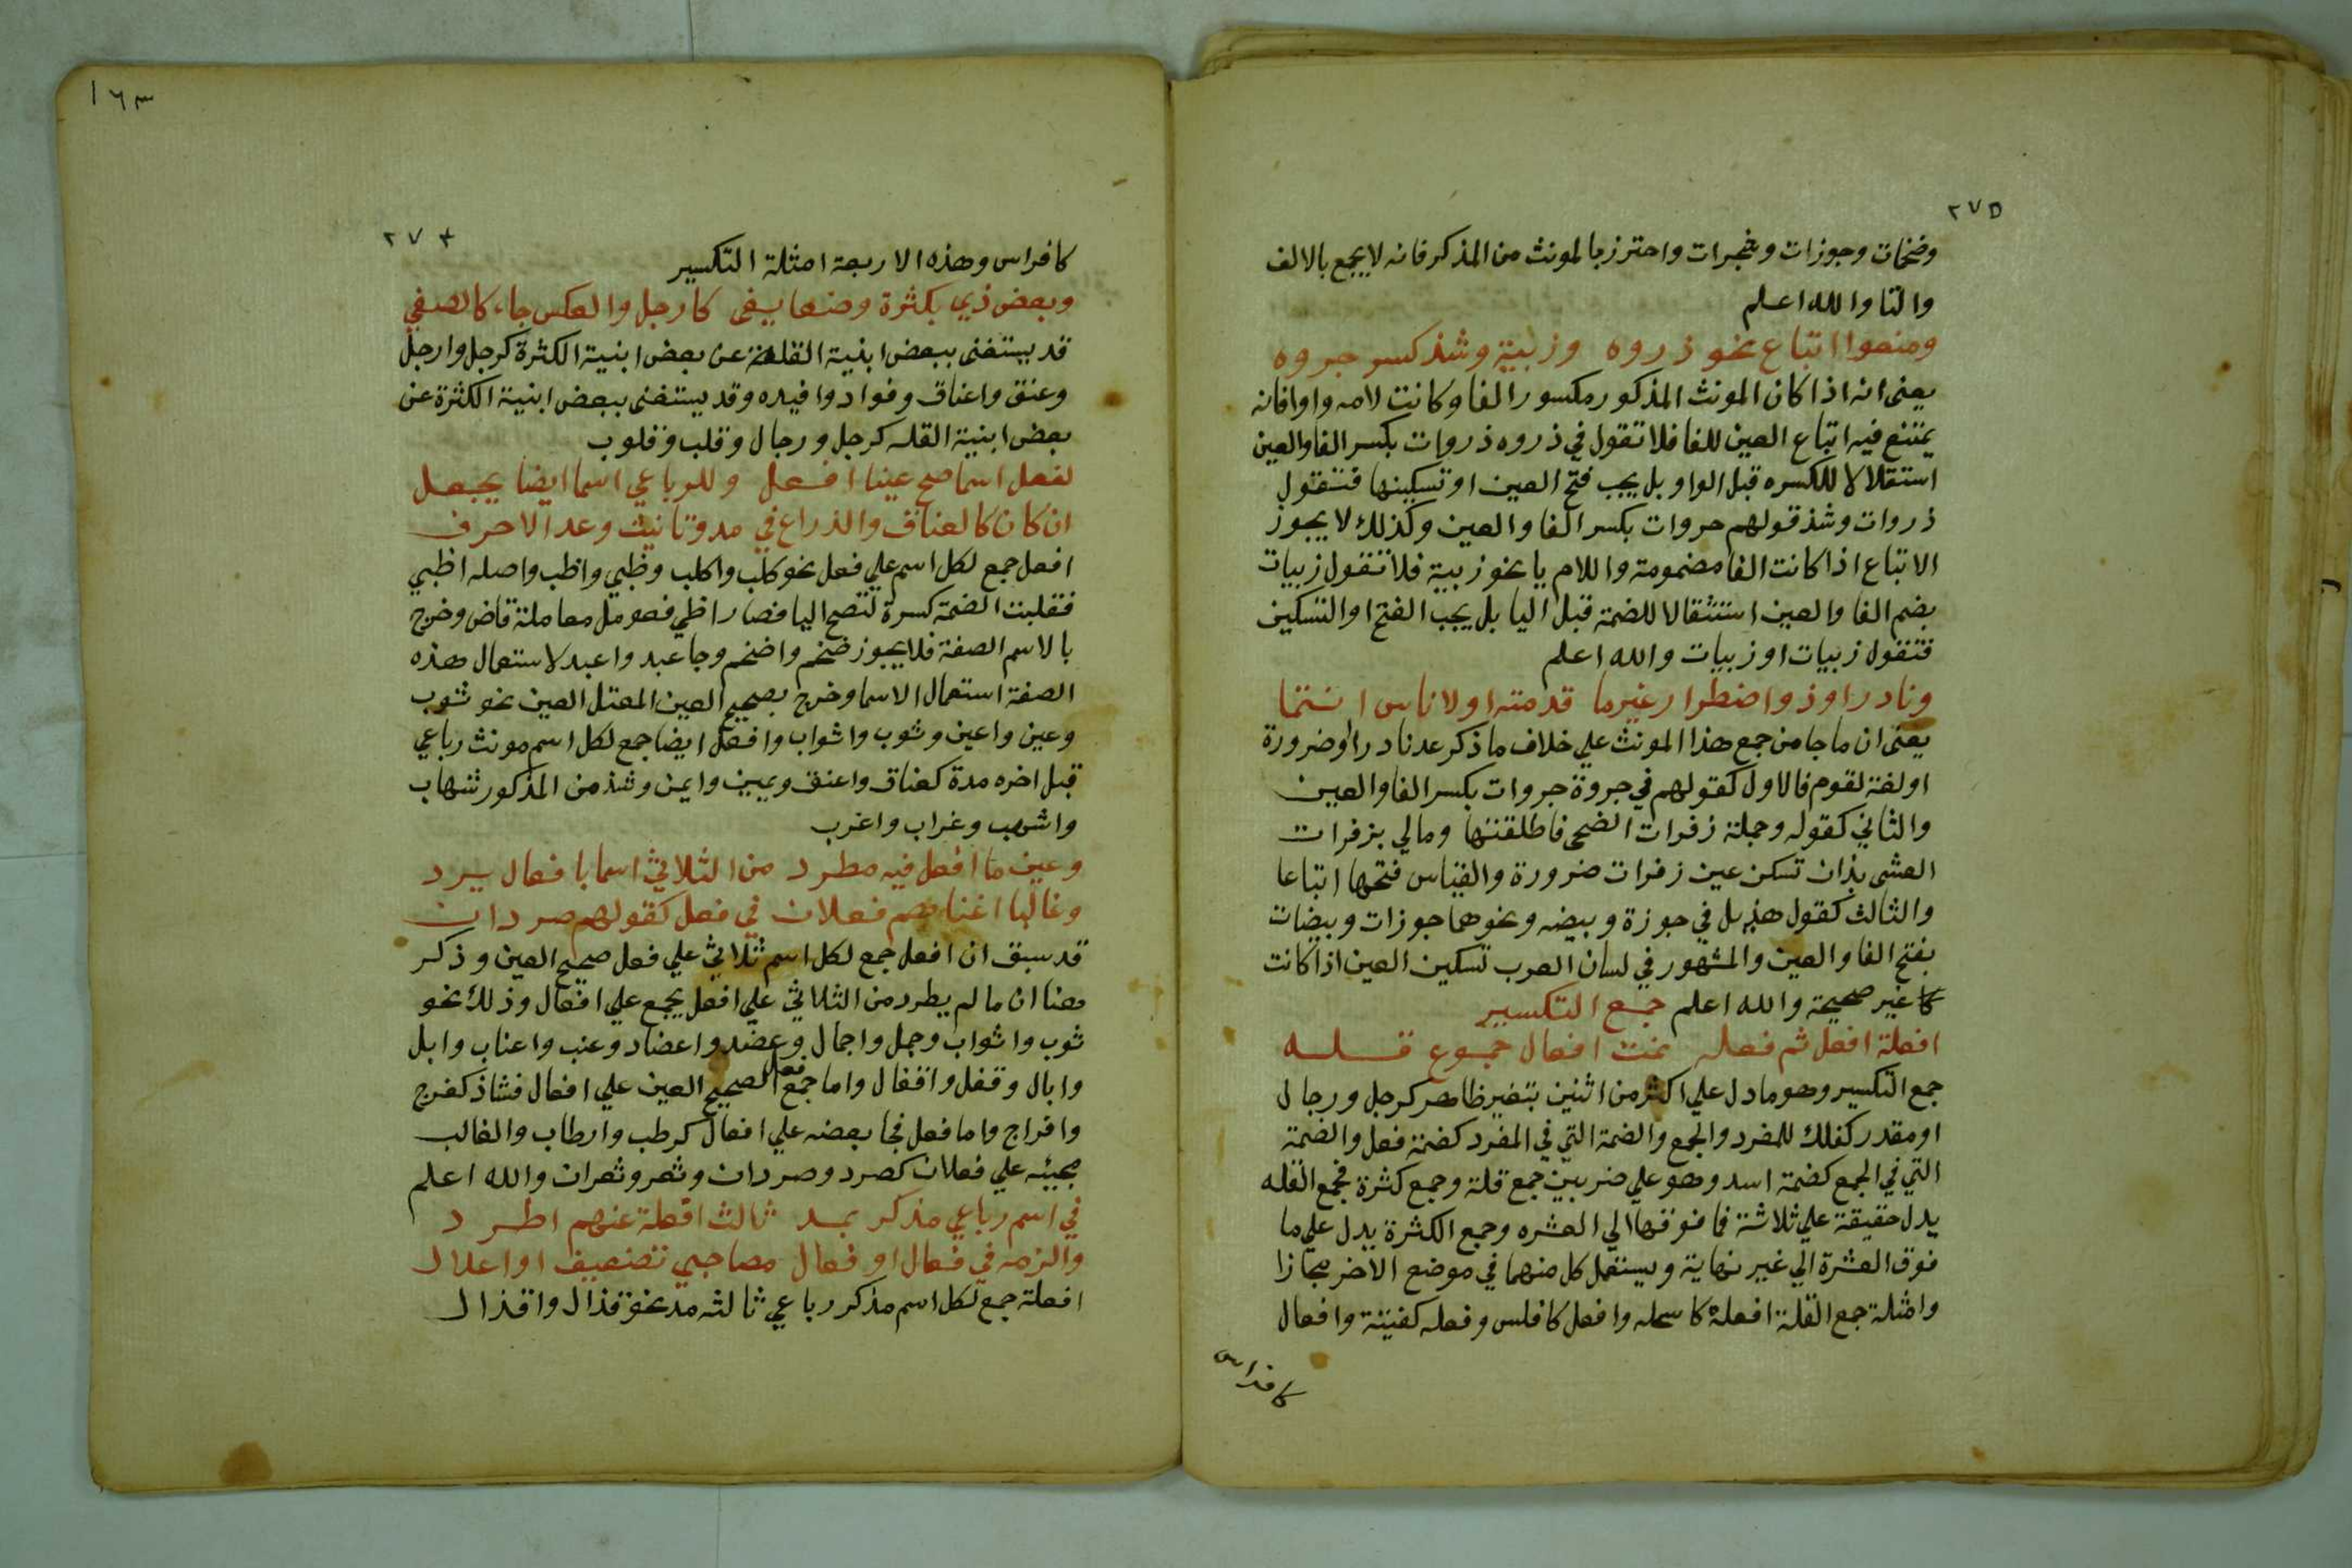 ٢٧٥
وضخمات وجوزات وشجرات واحترز بالمونث من المذكر فانه لا يجمع بالالف
والتا والله اعلم
ومنعوا اتباع نحو ذروه وزبية وشذ كسر جروه
يعني انه اذا كان المونث المذكور مكسور الفا وكانت لامه واوا فانه
يمتنع فيه اتباع العين للفا فلا تقول في ذروه ذروات بكسر الفا والعين
استقلالا للكسره قبل الواو بل يجب فتح العين او تسكينها فتقول
ذروات وشذ قولهم جروات بكسر الفا والعين وكذلك لا يجوز
الاتباع اذا كانت الفا مضمومة واللام يا نحو زبية فلا تقول زبيات
بضم الفا والعين استثقالا للضمة قبل اليا بل يجب الفتح او التسكين
فتقول زبيات او زبيات والله اعلم
ونادر او ذو اضطرار غير ما قدمته او لاناس انتما
يعني ان ما جا من جمع هذا المونث علي خلاف ما ذكر عد نادرا او ضرورة
او لغة لقوم فالاول كقولهم في جروة جروات بكسر الفا والعين
والثاني كقوله وحملة زفرات الضحى فاطلقتها ومالي بزفرات
العشي يدان تسكن عين زفرات ضرورة والقياس فتحها اتباعا
والثالث كقول هذيل في جوزة وبيضه ونحوهما جوزات وبيضات
بفتح الفا والعين والمشهور في لسان العرب تسكين العين اذا كانت
غير صحيحة والله اعلم جمع التكسير
افعلة افعل ثم فعله ثمت افعال جموع قله
جمع التكسير وهو ما دل علي اكثر من اثنين بتغير ظاهر كرجل ورجال
او مقدر كفلك للمفرد والجمع والضمة التي في المفرد كضمة قفل والضمة
التي في الجمع كضمة اسد وهو علي ضربين جمع قلة وجمع كثرة فجمع القله
يدل حقيقة علي ثلاثة فما فوقها الي العشره وجمع الكثرة يدل علي ما
فوق العشرة الي غير نهاية ويستعمل كل منهما في موضع الاخر مجازا
وامثلة جمع القلة افعلة كاسحله وافعل كافلس وفعله كفتية وافعال
كافراس
١٦٣
٢٧٤
كافراس وهذه الاربعة امثلة التكسير
وبعض ذي بكثرة وضعا يفي كارجل والعكس جاء كالصفي
قد يستغنى ببعض ابنية القلة عن بعض ابنية الكثرة كرجل وارجل
وعنق واعناق وفواد وافيده وقد يستغنى ببعض ابنية الكثرة عن
بعض ابنية القله كرجل ورجال وقلب وقلوب
لفعل اسما صح عينا افعل وللرباعي اسما ايضا يجعل
ان كان كالعناق والذراع في مد وتانيث وعد الاحرف
افعل جمع لكل اسم علي فعل نحو كلب واكلب وظبي واظب واصله اظبي
فقلبت الضمة كسرة لتصح اليا فصار اظبي فعومل معاملة قاض وخرج
بالاسم الصفة فلا يجوز ضخم واضخم وجا عبد واعبد لاستعمال هذه
الصفة استعمال الاسما وخرج بصحيح العين المعتل العين نحو ثوب
وعين واعين وثوب واثواب وافعل ايضا جمع لكل اسم مونث رباعي
قبل اخره مدة كعناق واعنق ويمين وايمن وشذ من المذكور شهاب
واشهب وغراب واغرب
وعين ما افعل فيه مطرد من الثلاثي اسما بافعال يرد
وغالبا اغناهم فعلان في فعل كقولهم صردان
قد سبق ان افعل جمع لكل اسم ثلاثي علي فعل صحيح العين وذكر
هنا ان ما لم يطرد من الثلاثي علي افعل يجمع علي افعال وذلك نحو
ثوب واثواب وجمل واجمال وعضد واعضاد وعنب واعناب وابل
وابال وقفل واقفال واما جمع فعل الصحيح العين علي افعال فشاذ كفرج
وافراج واما فعل فجا بعضه علي افعال كرطب وارطاب والغالب
مجيئه علي فعلان كصرد وصردان ونغر ونغران والله اعلم
في اسم رباعي مذكر بمد ثالث افعلة عنهم اطرد
والزمه في فعال او فعال مصاحبي تضعيف او اعلال
افعلة جمع لكل اسم مذكر رباعي ثالثه مد نحو قذال واقذال